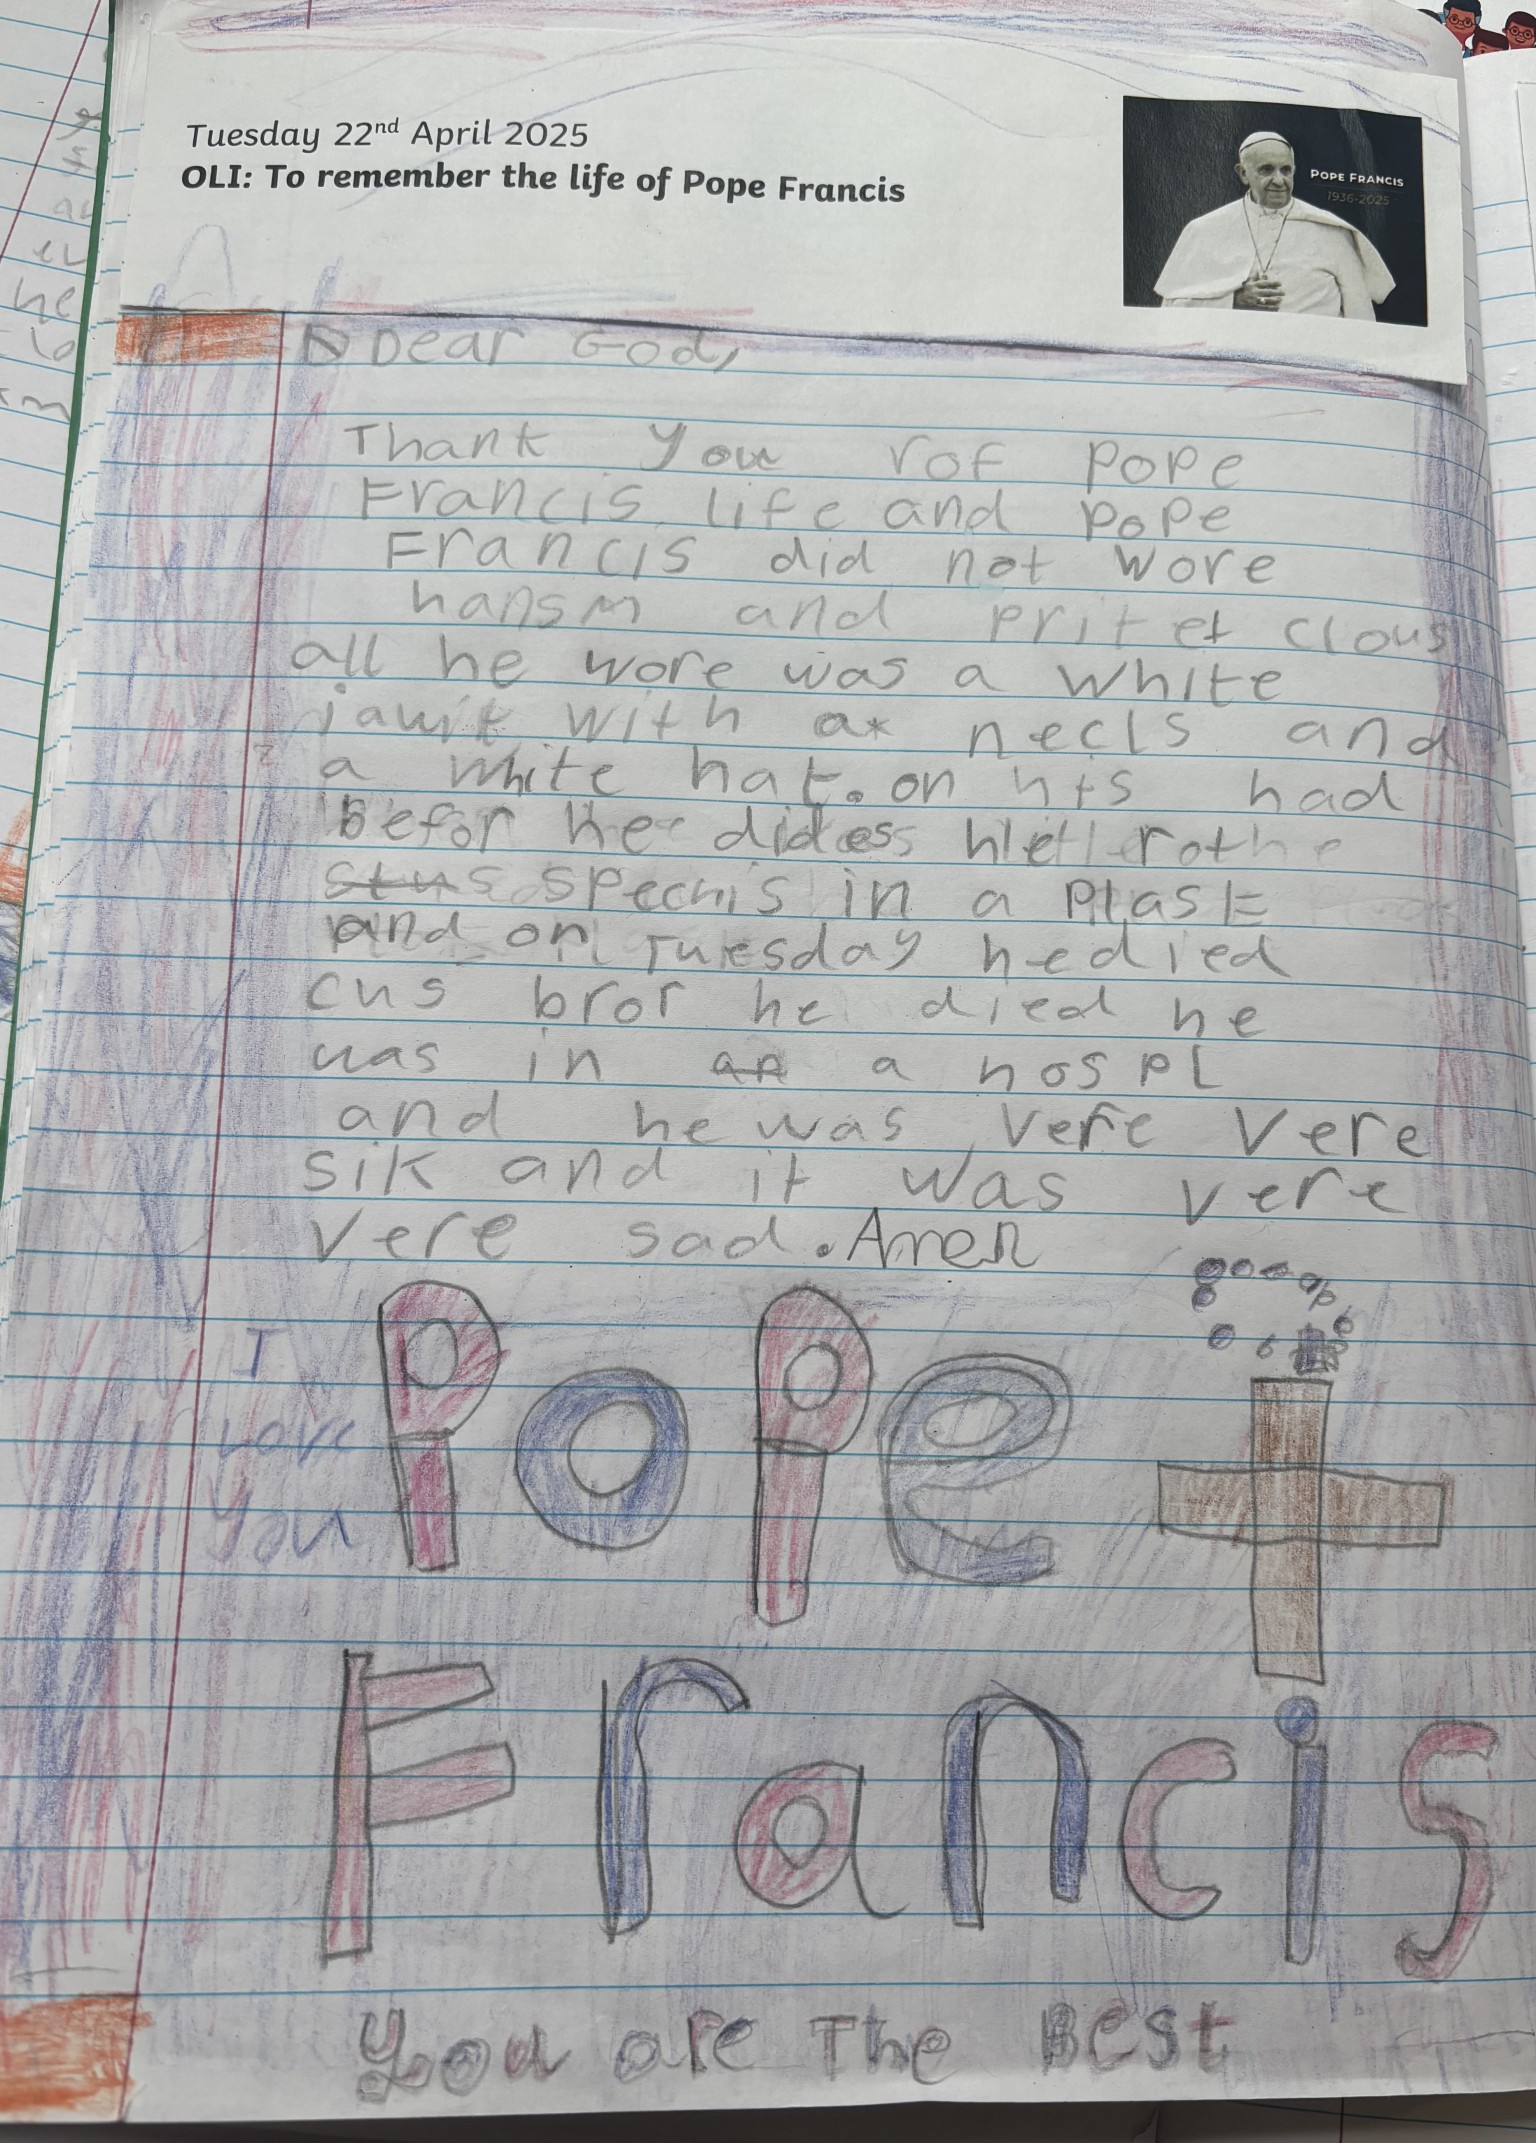 Tuesday 22nd April 2025
OLI: To remember the life of Pope Francis
POPE FRANCIS
1936-2025
Dear God,
Thank you rof Pope
Francis life and Pope
Francis did not wore
hansm and pritet clous
all he wore was a white
with a necls and
a white hat. on his had
befor he
in a Plask
and on Tuesday he died
cus bror he died he
was in a hospl
and he was vere vere
sik and it was vere
vere sad. Amen
I love you
Pope
Francis
You are The Best